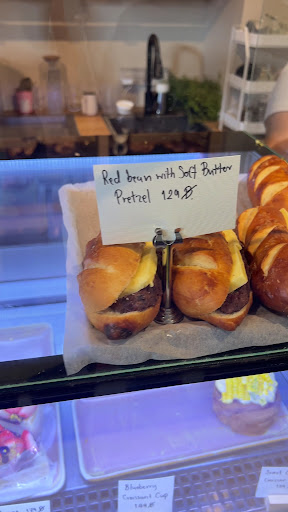 Red bean with Soft Butter
Pretzel 129.฿
Blueberry
Croissant Cup